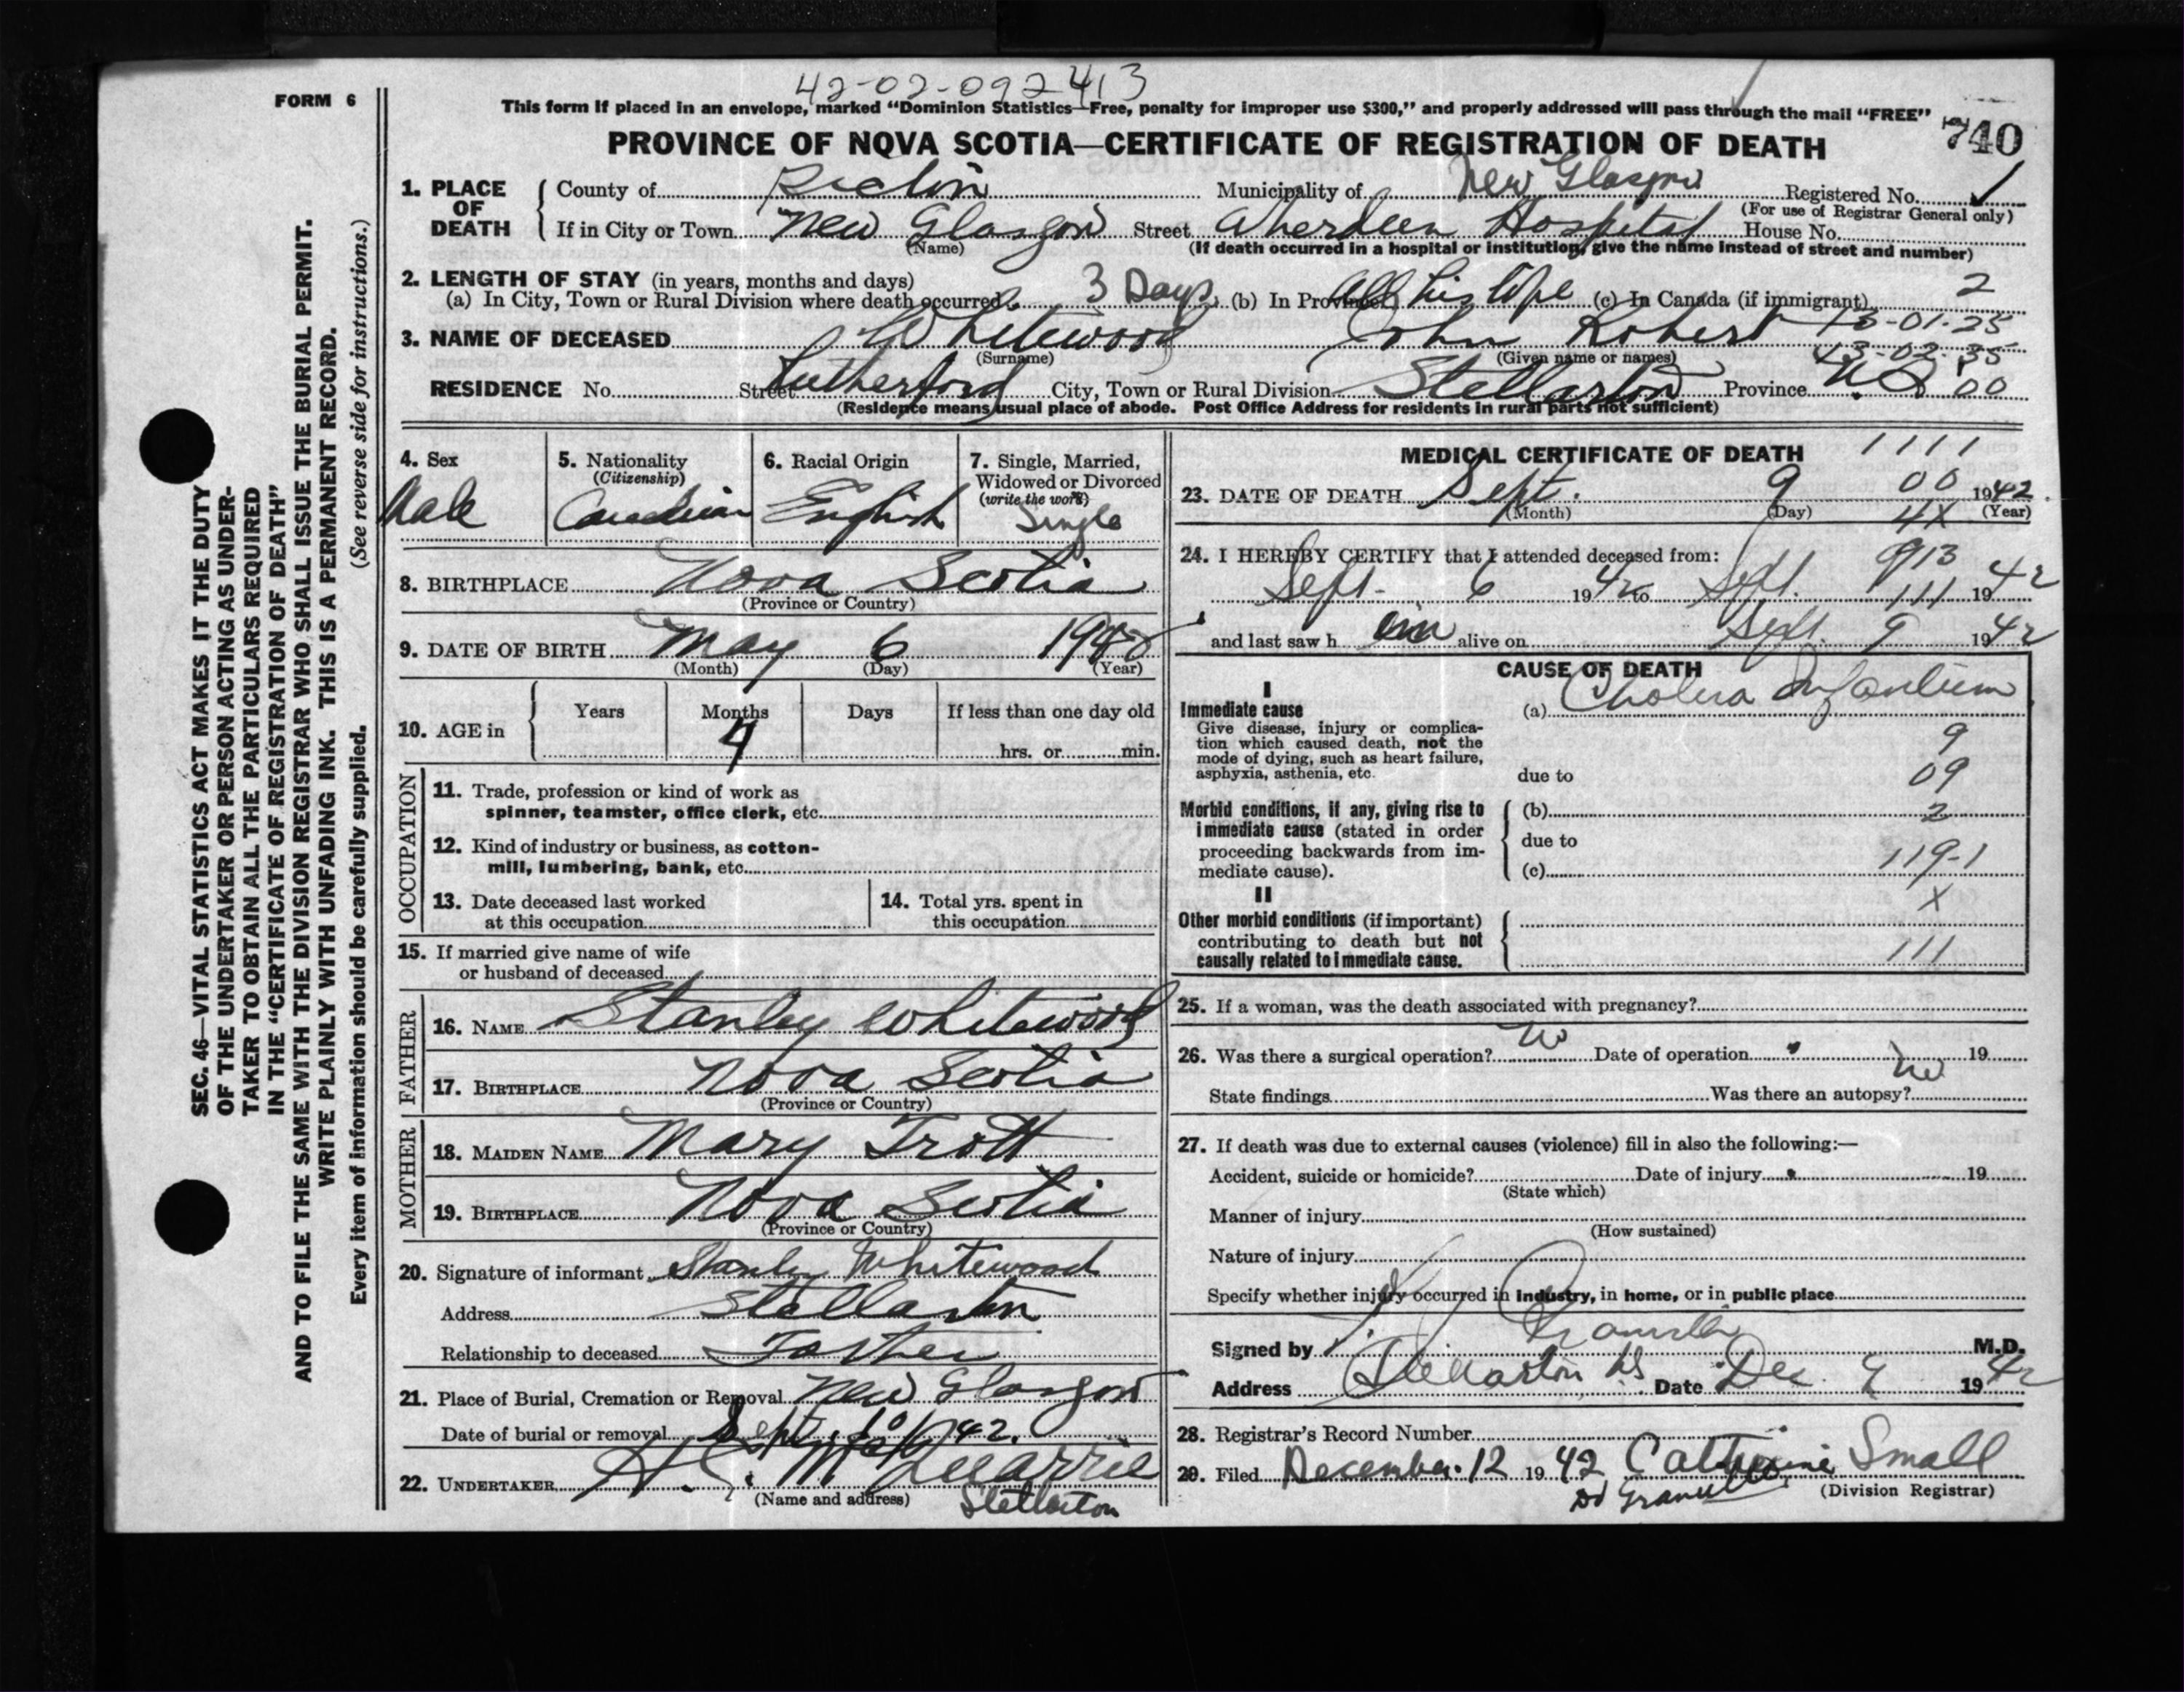 42-02-092413
FORM 6
This form if placed in an envelope, marked "Dominion Statistics—Free, penalty for improper use $300," and properly addressed will pass through the mail "FREE"
PROVINCE OF NOVA SCOTIA—CERTIFICATE OF REGISTRATION OF DEATH
740
SEC. 46—VITAL STATISTICS ACT MAKES IT THE DUTY
OF THE UNDERTAKER OR PERSON ACTING AS UNDER-
TAKER TO OBTAIN ALL THE PARTICULARS REQUIRED
IN THE "CERTIFICATE OF REGISTRATION OF DEATH"
AND TO FILE THE SAME WITH THE DIVISION REGISTRAR WHO SHALL ISSUE THE BURIAL PERMIT.
WRITE PLAINLY WITH UNFADING INK. THIS IS A PERMANENT RECORD.
Every item of information should be carefully supplied. (See reverse side for instructions.)
1. PLACE OF DEATH
County of Pictou Municipality of New Glasgow Registered No.
(For use of Registrar General only)
If in City or Town New Glasgow Street Aberdeen Hospital House No.
(Name) (If death occurred in a hospital or institution, give the name instead of street and number)
2. LENGTH OF STAY (in years, months and days)
(a) In City, Town or Rural Division where death occurred 3 Days (b) In Province All his life (c) In Canada (if immigrant) 2
3. NAME OF DECEASED Whitewood John Robert 13-01-25
(Surname) (Given name or names) 43-02-35
RESIDENCE No. Street Rutherford City, Town or Rural Division Stellarton Province N.S. 00
(Residence means usual place of abode. Post Office Address for residents in rural parts not sufficient)
4. Sex Male
5. Nationality (Citizenship) Canadian
6. Racial Origin English
7. Single, Married, Widowed or Divorced (write the word) Single
8. BIRTHPLACE Nova Scotia
(Province or Country)
9. DATE OF BIRTH May 6 1942
(Month) (Day) (Year)
10. AGE in Years Months Days If less than one day old
4 hrs. or min.
OCCUPATION
11. Trade, profession or kind of work as
spinner, teamster, office clerk, etc.
12. Kind of industry or business, as cotton-
mill, lumbering, bank, etc.
13. Date deceased last worked
at this occupation
14. Total yrs. spent in
this occupation
15. If married give name of wife
or husband of deceased
FATHER
16. NAME Stanley Whitewood
17. BIRTHPLACE Nova Scotia
(Province or Country)
MOTHER
18. MAIDEN NAME Mary Trott
19. BIRTHPLACE Nova Scotia
(Province or Country)
20. Signature of informant Stanley Whitewood
Address Stellarton
Relationship to deceased Father
21. Place of Burial, Cremation or Removal New Glasgow
Date of burial or removal Sept. 10/1942.
22. UNDERTAKER
(Name and address) Stellarton
MEDICAL CERTIFICATE OF DEATH 1111
23. DATE OF DEATH Sept. 9 00 1942.
(Month) (Day) 4X (Year)
24. I HEREBY CERTIFY that I attended deceased from: 913
Sept. 6 1942 to Sept. 111 1942
and last saw him alive on Sept. 9 1942
CAUSE OF DEATH
I
Immediate cause (a) Cholera Infantum
Give disease, injury or complica-
tion which caused death, not the
mode of dying, such as heart failure,
asphyxia, asthenia, etc.
9
due to 09
Morbid conditions, if any, giving rise to
immediate cause (stated in order
proceeding backwards from im-
mediate cause).
(b) 2
due to
(c) 119-1
II
X
Other morbid conditions (if important)
contributing to death but not
causally related to immediate cause.
111
25. If a woman, was the death associated with pregnancy?
26. Was there a surgical operation? No Date of operation 19
State findings Was there an autopsy? No
27. If death was due to external causes (violence) fill in also the following:—
Accident, suicide or homicide? Date of injury 19
(State which)
Manner of injury
(How sustained)
Nature of injury
Specify whether injury occurred in industry, in home, or in public place
Signed by M.D.
Address Stellarton NS Date Dec. 9 1942
28. Registrar's Record Number
29. Filed December 12 1942 Catherine Small
(Division Registrar)